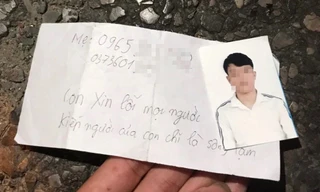 Mẹ: 0965
0973601
Con Xin lỗi mọi người
Kiếp người của con chỉ là